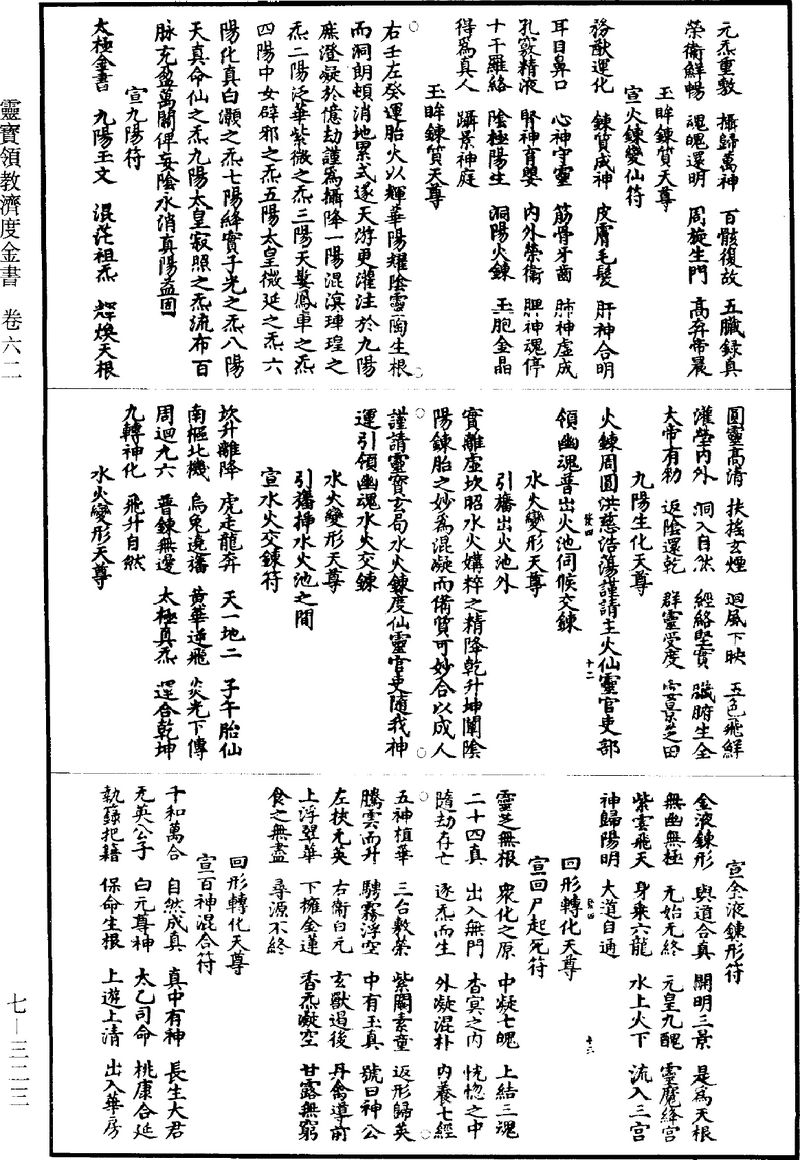 元炁重敷　攝歸萬神　百骸復故　五臟錄真
榮衛鮮暢　魂魄還明　周旋生門　高奔帝晨
玉眸鍊質天尊
宣火鍊變仙符
務猷運化　鍊質成神　皮膚毛髮　肝神合明
耳目鼻口　心神守靈　筋骨牙齒　肺神虛成
孔竅精液　腎神育嬰　內外榮衛　脾神魂停
十千羅絡　陰極陽生　洞陽火鍊　玉胞金晶
得爲真人　躡景神庭
玉眸鍊質天尊
右壬左癸運胎火以輝華陽耀陰靈陶生根
而洞朗頓消地累式遂天游更灌注於九陽
庶澄凝於億劫謹爲攝降一陽混溟瑋瑝之
炁二陽泛華紫微之炁三陽天婁鳳車之炁
四陽中女辟邪之炁五陽太皇微延之炁六
陽化真白灝之炁七陽絳實子光之炁八陽
天真命仙之炁九陽太皇寂照之炁流布百
脉充盈萬關俾妄陰永消真陽益固
宣九陽符
太極金書　九陽玉文　混茫祖炁　輝煥天根
圓靈高清　扶搖玄煙　迴風下映　五色飛鮮
灌瑩內外　洞入自然　經絡堅實　臟腑生全
大帝有勑　返陰還乾　群靈受度　雲景芝田
九陽生化天尊
火鍊周圓洪慈浩蕩謹請主火仙靈官吏部
領幽魂普出火池伺候交鍊
水火變形天尊
引旛出火池外
實離虛坎昭水火媾粹之精降乾升坤闡陰
陽鍊胎之妙爲混凝而備質可妙合以成人
謹請靈寶玄局水火鍊度仙靈官吏隨我神
運引領幽魂水火交鍊
水火變形天尊
引旛揷水火池之間
宣水火交鍊符
坎升離降　虎走龍奔　天一地二　子午胎仙
南樞北機　烏兔遶旛　黃華逆飛　炎光下傳
周迴九六　普鍊無邊　太極真炁　運合乾坤
九轉神化　飛升自然
水火變形天尊
宣金液鍊形符
金液鍊形　與道合真　開明三景　是爲天根
無幽無極　无始无終　元皇九醜　靈魔絳宮
紫雲飛天　身乘六龍　水上火下　流入三宮
神歸陽明　大道自通
回形轉化天尊
宣回尸起死符
靈芝無根　衆化之原　中凝七魄　上結三魂
二十四真　出入無門　杳冥之內　恍惚之中
隨劫存亡　逐炁而生　外凝混朴　內養七經
五神植華　三台敷榮　紫闕素童　返形歸英
騰雲而升　騁霧浮空　中有玉真　號曰神公
左挾无英　右衛白元　玄獸遏後　丹禽導前
上浮翠華　下擁金蓮　香炁凝空　甘露無窮
食之無盡　尋源不終
回形轉化天尊
宣百神混合符
千和萬合　自然成真　真中有神　長生大君
无英公子　白元尊神　太乙司命　桃康合延
執籙把籍　保命生根　上遊上清　出入華房
靈寶領教濟度金書　卷六二
七－三二三